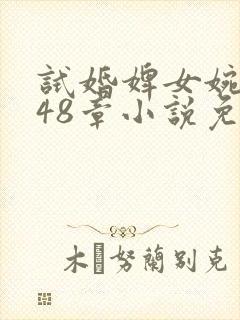 試婚婢女婉
48章小說免
木努蘭別克